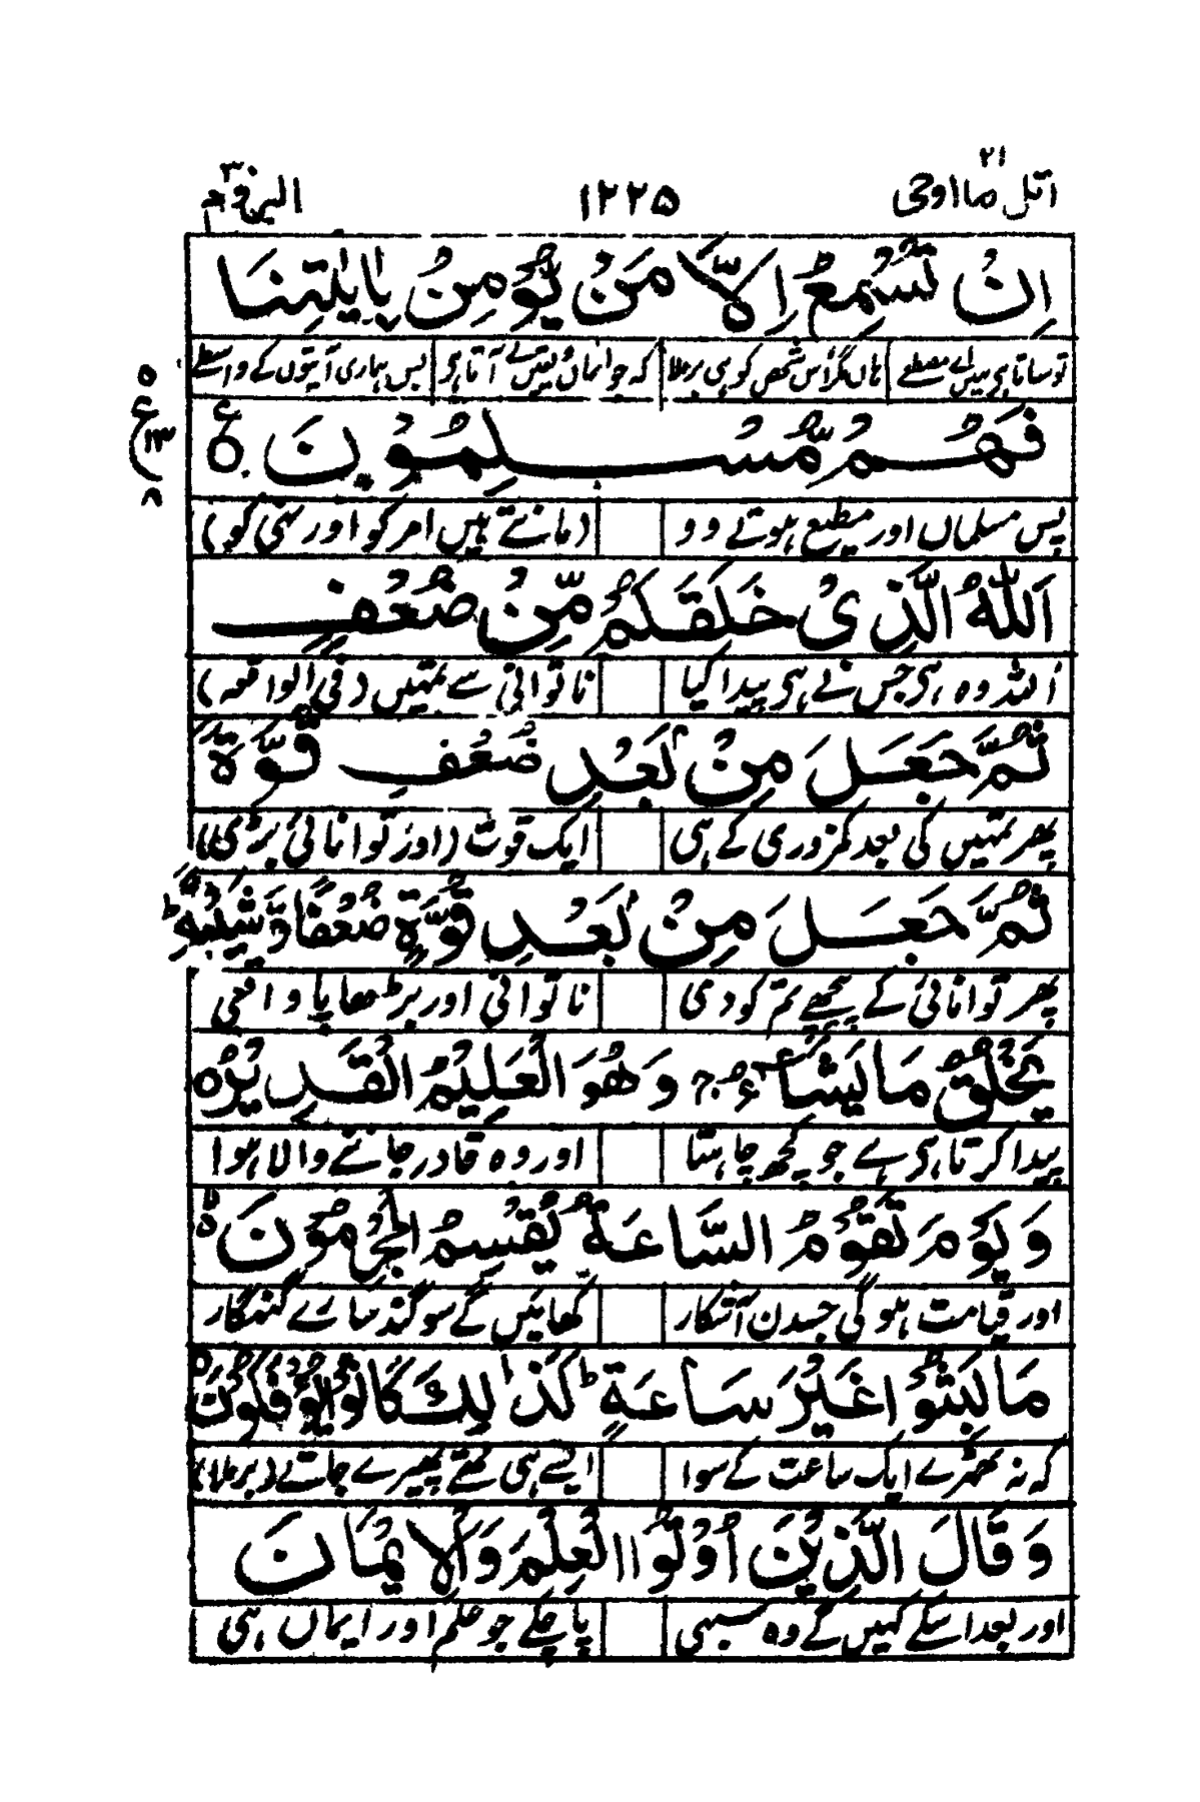 اتل ما اوحی ۲۱ ۱۲۲۵ الروم ۳۰
اِنْ تُسْمِعُ اِلَّا مَنْ يُّؤْمِنُ بِاٰيٰتِنَا
تو سناتا ہی نہیں اے مصطفےٰ ہاں مگر اُس شخص کو ہی برملا کہ جو ایمان و یقیں لے آتا ہی بس ہماری آیتوں کے واسطے
فَهُمْ مُّسْلِمُوْنَ ۝ ع
پس مسلماں اور مطیع ہوتے وو (مانتے ہیں امر کو اور نہی کو)
۵
ع
۱۳
اَللّٰهُ الَّذِیْ خَلَقَكُمْ مِّنْ ضُعْفٍ
اُللہ وہ ہی جس نے ہی پیدا کیا ناتوانی سے تمہیں (فی الواقعہ)
ثُمَّ جَعَلَ مِنْۢ بَعْدِ ضُعْفٍ قُوَّةً
پھر تمہیں کی بعد کمزوری کے ہی ایک قوت (اور توانائی بڑی)
ثُمَّ جَعَلَ مِنْۢ بَعْدِ قُوَّةٍ ضُعْفًا وَّشَيْبَةً ؕ
پھر توانائی کے پیچھے تم کو دی ناتوانی اور بڑھاپا واقعی
يَخْلُقُ مَا يَشَآءُ ۚ وَهُوَ الْعَلِيْمُ الْقَدِيْرُ ۝
پیدا کرتا ہی ہے جو کچھ چاہتا اور وہ قادر جاننے والا ہوا
وَيَوْمَ تَقُوْمُ السَّاعَةُ يُقْسِمُ الْمُجْرِمُوْنَ
اور قیامت ہو گی جسدن آشکار کھائیں گے سوگند سارے گنہگار
مَا لَبِثُوْا غَيْرَ سَاعَةٍ ؕ كَذٰلِكَ كَانُوْا يُؤْفَكُوْنَ ۝
کہ نہ ٹھہرے ایک ساعت کے سوا ایسے ہی تھے پھیرے جاتے (برملا)
وَقَالَ الَّذِيْنَ اُوْتُوا الْعِلْمَ وَالْاِيْمَانَ
اور بعد اسکے کہیں گے وہ سبھی پا چکے جو علم اور ایماں ہی